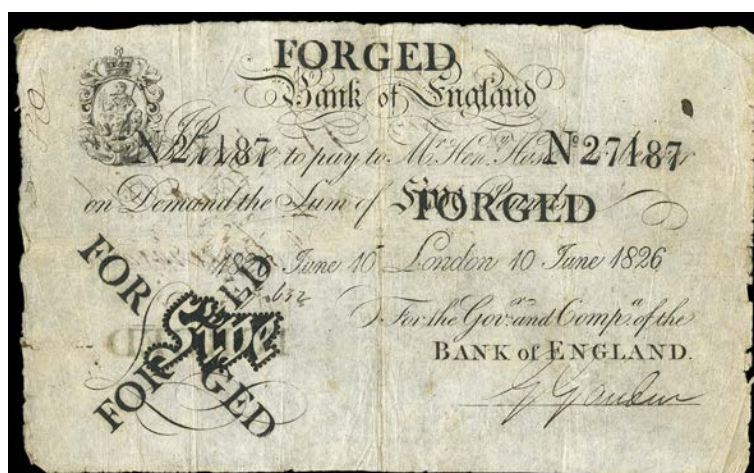 FORGED
Bank of England
No 27187 to pay to Mr. Hen. Hase No 27187
on Demand the Sum of Five Pounds
FORGED
1826 June 10 London 10 June 1826
For the Govr. and Compa. of the
BANK of ENGLAND.
FORGED
Five
FORGED